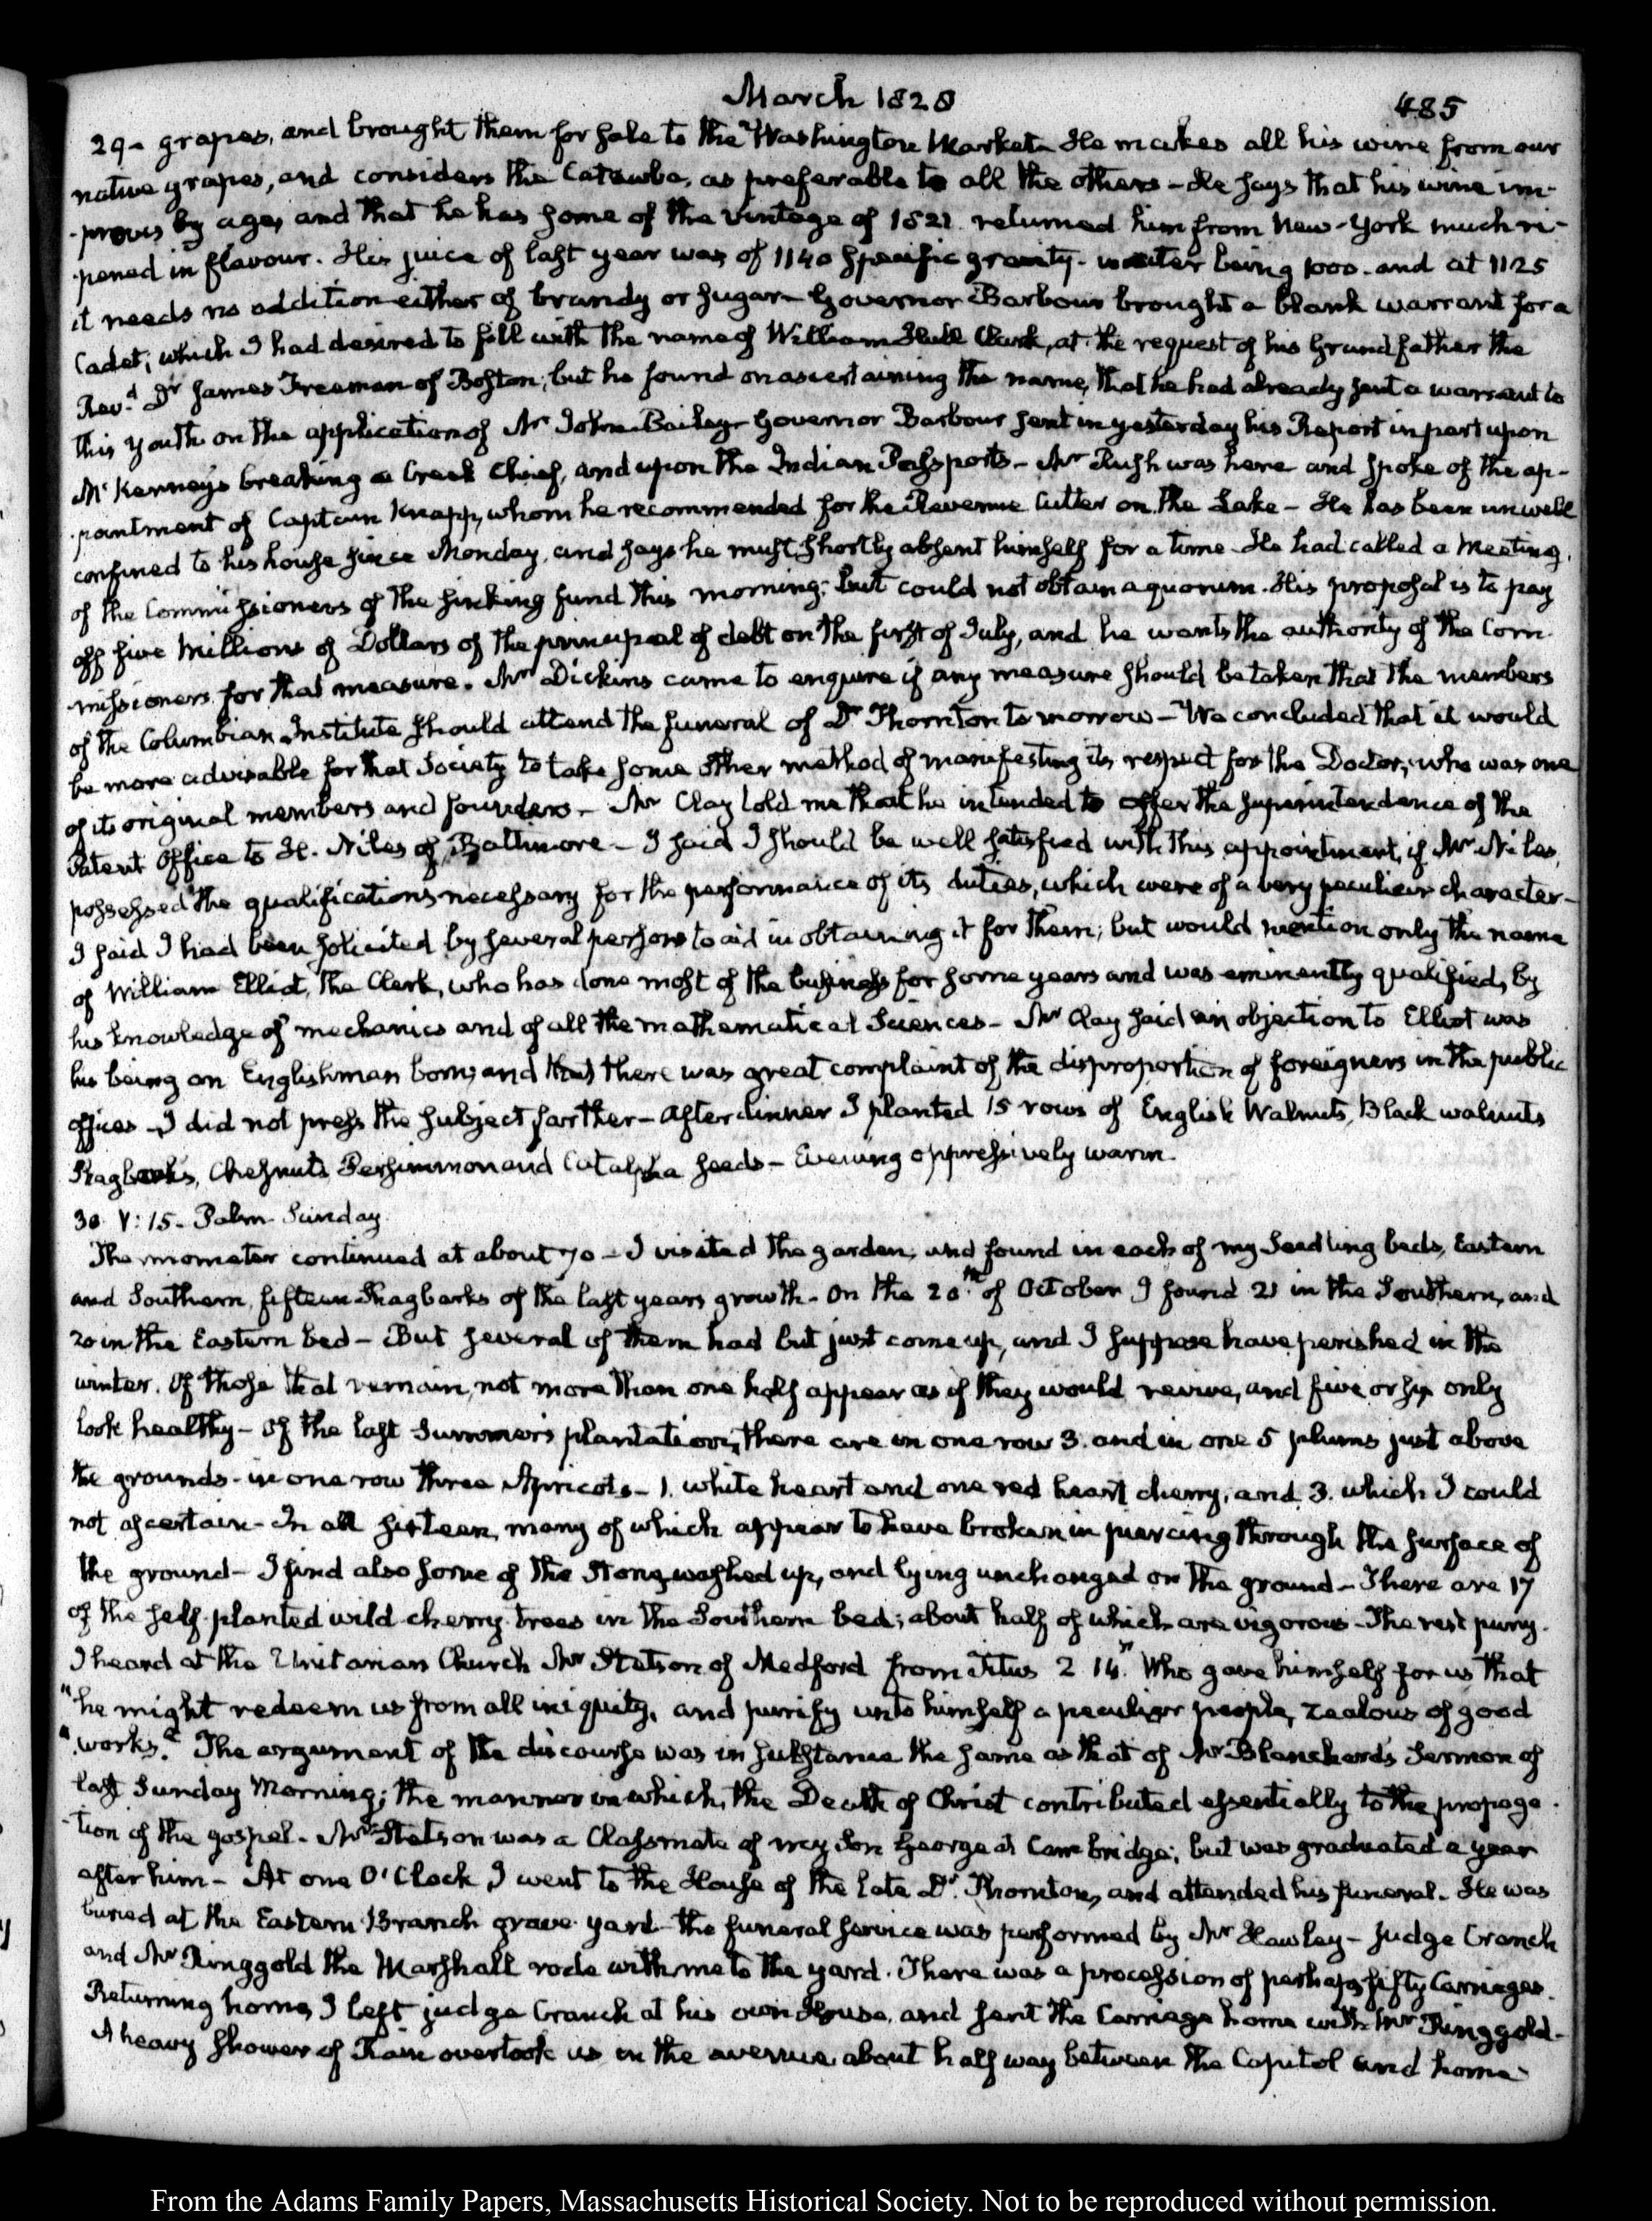 March 1828
485
29- grapes, and brought them for sale to the Washington Market- He makes all his wine from our
native grapes, and considers the Catawba, as preferable to all the others- He says that his wine im-
-proves by age, and that he has some of the vintage of 1821 returned him from New-York much ri-
-pened in flavour. His juice of last year was of 1140 specific gravity- water being 1000- and at 1125
it needs no addition either of brandy or sugar- Governor Barbour brought a blank warrant for a
Cadet; which I had desired to fill with the name of William Hull Clark, at the request of his Grandfather the
Revd. Dr James Freeman of Boston; but he found on ascertaining the name, that he had already sent a warrant to
this youth on the application of Mr John Bailey- Governor Barbour sent in yesterday his Report in part upon
McKenney's breaking a Creek Chief, and upon the Indian Passports- Mr Rush was here and spoke of the ap-
-pointment of Captain Knapp, whom he recommended for the Revenue Cutter on the Lake- He has been unwell
confined to his house since Monday, and says he must shortly absent himself for a time- He had called a Meeting,
of the Commissioners of the sinking fund this morning: but could not obtain a quorum. His proposal is to pay
off five Millions of Dollars of the principal of debt on the first of July, and he wants the authority of the Com-
-missioners for that measure. Mr Dickins came to enquire if any measure should be taken that the members
of the Columbian Institute should attend the funeral of Dr Thornton to morrow- We concluded that it would
be more advisable for that Society to take some other method of manifesting its respect for the Doctor, who was one
of its original members and founders- Mr Clay told me that he intended to offer the superintendence of the
Patent Office to H. Niles of Baltimore- I said I should be well satisfied with this appointment, if Mr Niles,
possessed the qualifications necessary for the performance of its duties, which were of a very peculiar character-
I said I had been solicited by several persons to aid in obtaining it for them; but would mention only the name
of William Elliot, the Clerk, who has done most of the business for some years and was eminently qualified, by
his knowledge of mechanics and of all the mathematical Sciences- Mr Clay said an objection to Elliot was
his being an Englishman born; and that there was great complaint of the disproportion of foreigners in the public
offices- I did not press the subject farther- After dinner I planted 15 rows of English Walnuts, Black walnuts
Shagbarks, Chesnuts Persimmon and Catalpha seeds- Evening oppressively warm.
30 V:15- Palm Sunday.
Thermometer continued at about 70- I visited the garden, and found in each of my Seedling beds, Eastern
and Southern, fifteen Shagbarks of the last years growth- On the 20th. of October I found 21 in the Southern, and
20 in the Eastern bed- But several of them had but just come up, and I suppose have perished in the
winter. Of those that remain, not more than one half appear as if they would revive, and five or six only
look healthy- Of the last Summer's plantation, there are in one row 3. and in one 5 plums just above
the ground- in one row three Apricots- 1. white heart and one red heart cherry, and 3. which I could
not ascertain- In all sixteen, many of which appear to have broken in piercing through the surface of
the ground- I find also some of the Stones washed up, and lying unchanged on the ground- There are 17
of the self planted wild cherry trees in the Southern bed; about half of which are vigorous- The rest puny.
I heard at the Unitarian Church Mr Stetson of Medford from Titus 2 14. "Who gave himself for us that
"he might redeem us from all iniquity, and purify unto himself a peculiar people, zealous of good
"works." The argument of the discourse was in substance the same as that of Mr Blanchard's Sermon of
last Sunday Morning; the manner in which, the Death of Christ contributed essentially to the propaga-
-tion of the gospel- Mr Stetson was a Classmate of my Son George at Cambridge; but was graduated a year
after him- At one O'Clock, I went to the House of the late Dr. Thornton, and attended his funeral. He was
buried at the Eastern Branch grave yard- the funeral service was performed by Mr Hawley- Judge Cranch
and Mr Ringgold the Marshall rode with me to the yard. There was a procession of perhaps fifty Carriages.
Returning home, I left judge Cranch at his own House, and sent the Carriage home with Mr Ringgold-
A heavy shower of Rain overtook us in the avenue about half way between the Capitol and home-
From the Adams Family Papers, Massachusetts Historical Society. Not to be reproduced without permission.